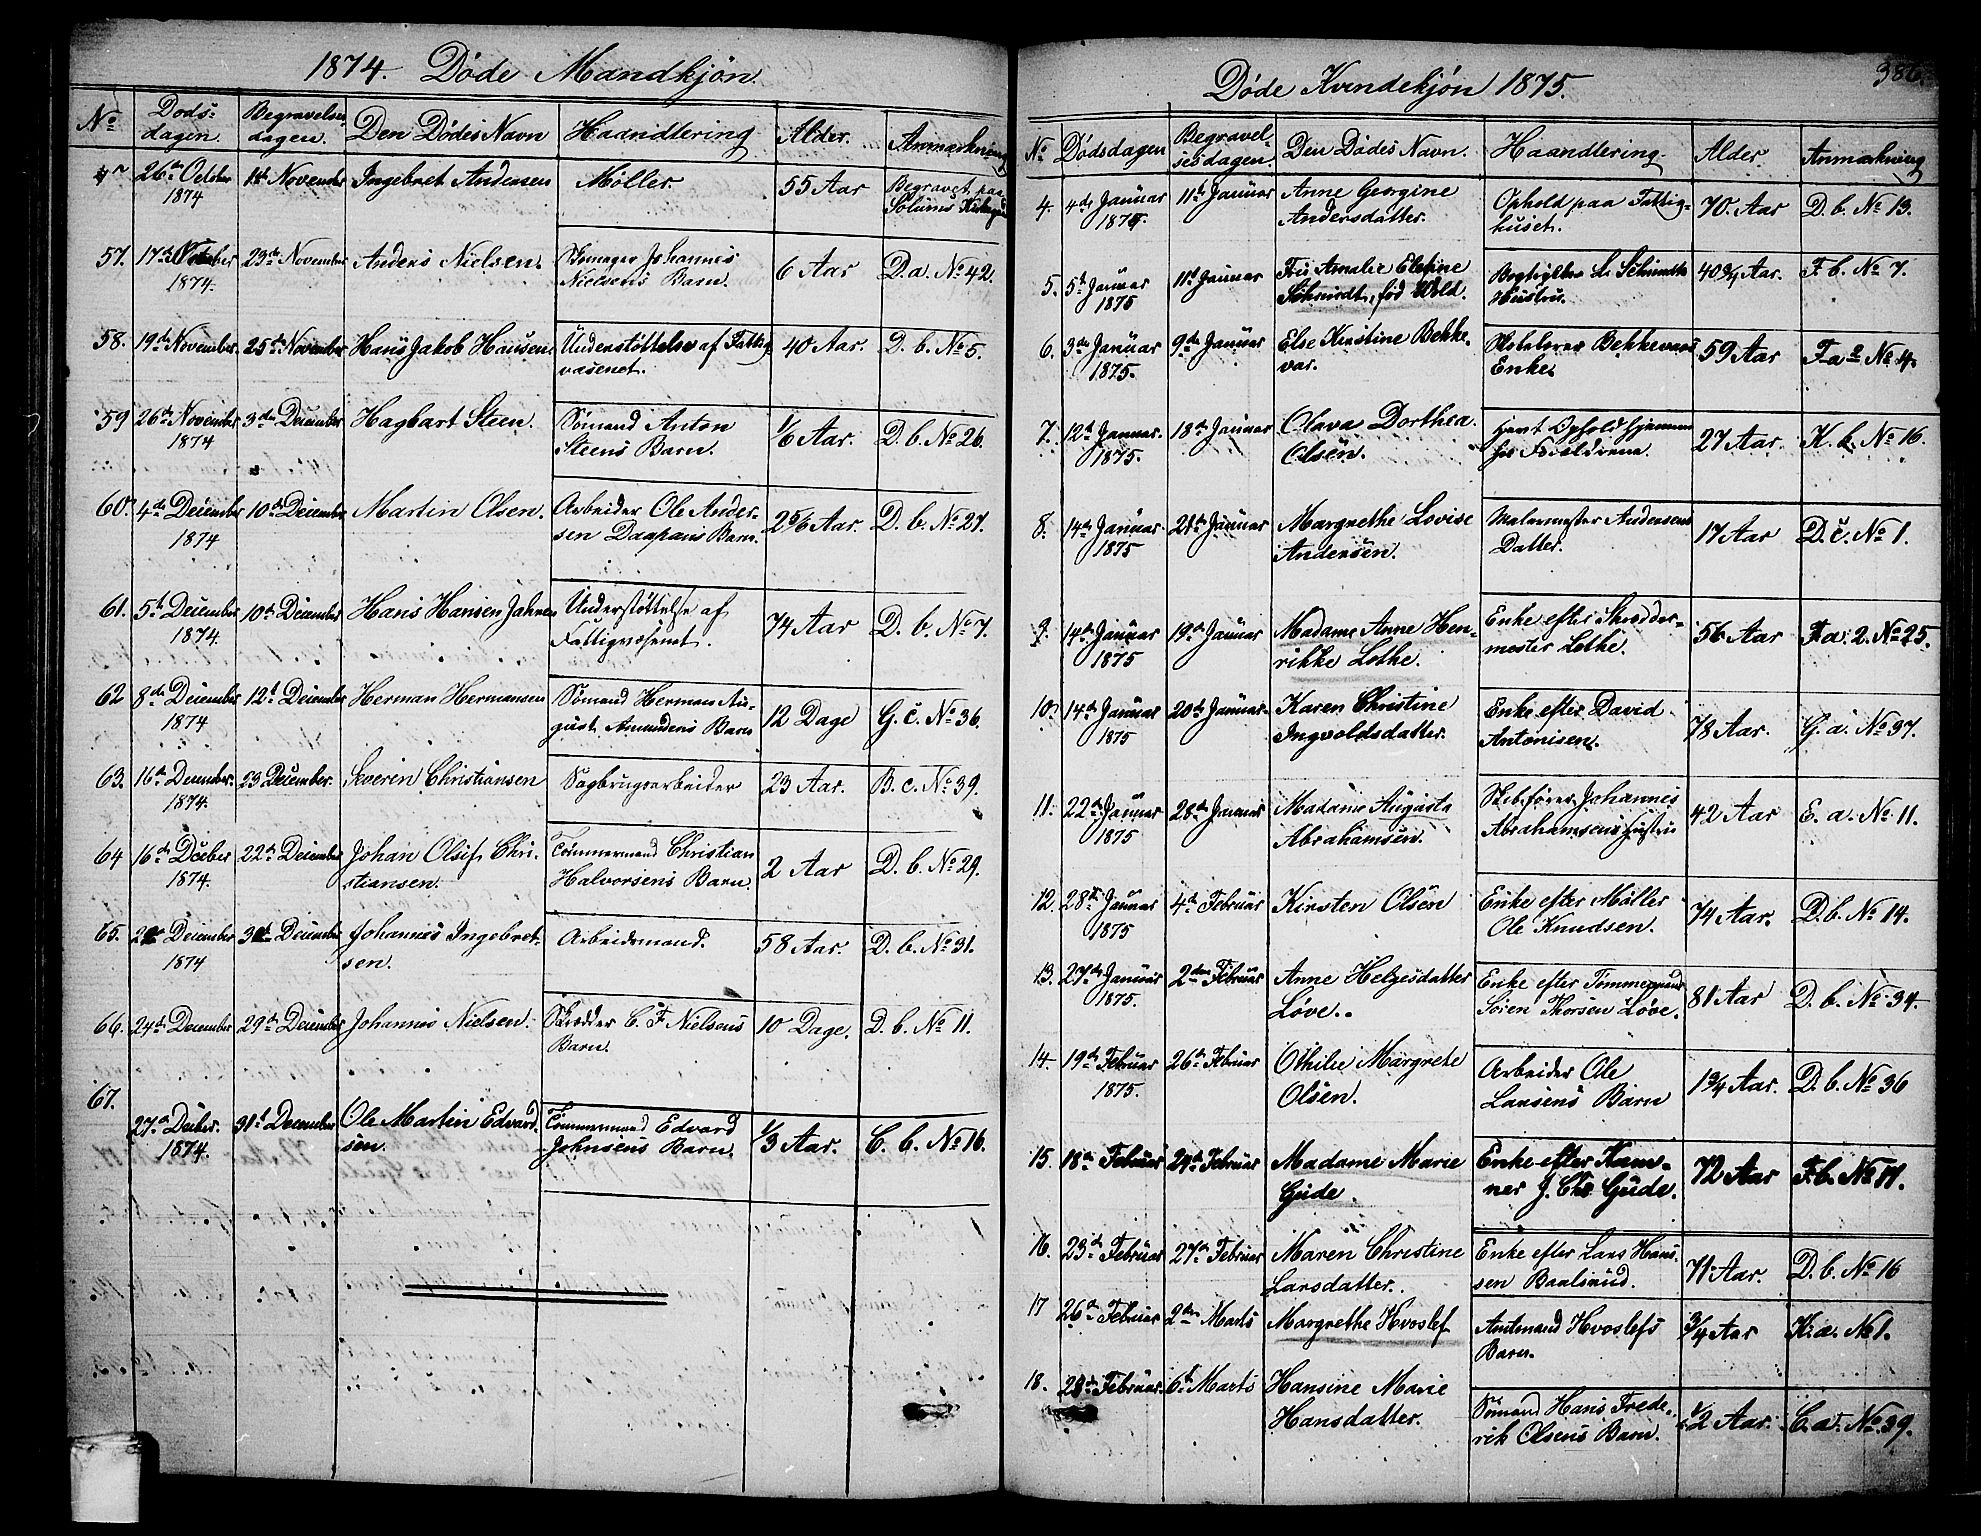 1874. Døde Mandkjøn
No
Døds-
dagen.
Begravelses
dagen.
Den Dødes Navn
Haandtering
Alder.
Anmærkning
26de October
1874
1ste November
Ingebret Andersen
Møller.
55 Aar
Begravet paa
Solums Kirkegd
57.
17de October
1874.
23de November
Anders Nielsen.
Johannes
Nielsens Barn.
6 Aar
D. a. No 42.
58.
19de November.
25de November
Hans Jakob Hansen.
Understøttelse af Fattig
væsenet.
40 Aar.
D. b. No 5.
59
26de November
1874
3die December
Hagbart Steen.
Sømand Anton
Steens Barn.
1/6 Aar.
D. b. No 26.
60.
4de December
1874
10de December
Martin Olsen.
Arbeider Ole Ander-
sen Barn.
2 5/6 Aar.
D. b. No 27.
61.
5te December
1874.
10de December
Hans Hansen Jahren
Understøttelse af
Fattigvæsenet.
74 Aar
D. b. No 7.
62
8de December
1874
12te December
Herman Hermansen
Sømand Herman Au-
gust Amundsens Barn
12 Dage
G. c. No 36.
63.
16de December.
1874.
23 December.
Severin Christiansen
Sagbrugsarbeider
23 Aar.
B. c. No 39.
64
16de Dceber
1874.
22de December
Johan Olaf Chri-
stiansen.
Tømmermand Christian
Halvorsens Barn.
2 Aar
D. b. No 29.
65.
December
1874
December
Johannes Ingebret-
sen.
Arbeidsmand.
58 Aar.
D. b. No 31.
66.
24de December
29de December
Johannes Nielsen.
Skrædder C. F Nielsens
Barn.
10 Dage.
D. b. No 11.
67.
27de Decber.
1874.
31te December
Ole Martin Edvard-
sen.
Tømmermand Edvard
Johnsens Barn.
1/3 Aar.
C. b. No 16.
Døde Kvindekjøn 1875.
386.
No
Dødsdagen
Begravel-
sesdagen.
Den Dødes Navn.
Haandtering
Alder
Anmærkning
4.
4de Januar
11te Januar
Anne Georgine
Andersdatter.
Ophold paa Fattig-
huset.
70. Aar
D. b. No 13.
5.
5te Januar
1875
11te Januar
Amalie
Schmidt, fød Wold.
Schmidts
Hustru.
40 3/4 Aar.
F. b. No 7.
6.
3die Januar
1875.
9de Januar
Else Kirstine Bekke-
var.
Bekkevars
Enke.
59 Aar
F a 2 No 4.
7.
12te Januar.
1875.
18de Januar
Olava Dorthea
Olsen.
Ophold hjemme
hos Forældrene
27 Aar.
K. b. No 16.
8.
14de Januar
1875
21de Januar
Margrethe Lovise
Andersen.
Malermester Andersens
Datter.
17 Aar
D. c. No 1.
9.
14de Januar
1875
19de Januar
Madame Anne Hen-
rikke Lothe.
Enke efter Skrædder-
mester Lothe.
56 Aar
F. a. 2. No 25.
10.
14de Januar
1875
20de Januar.
Karen Christine
Ingvoldsdatter.
Enke efter David
Antonisen.
78 Aar.
G. a. No 37.
11.
22de Januar
1875
28de Januar
Madame Augusta
Abrahamsen.
Skibsfører Johannes
Abrahamsens Hustru
42 Aar
E. a. No 11.
12.
28de Januar
1875
4de Februar
Kirsten Olsen
Enke efter Møller
Ole Knudsen.
74 Aar.
D. b. No 14.
13.
27de Januar
1875.
2den Februar
Anne Helgesdatter
Løve.
Enke efter Tømmermand
Søren Thorsen Løve.
81 Aar
D. b. No 34.
14.
19de Februar
1875.
26de Februar
Othilie Margrete
Olsen.
Arbeider Ole
Larsens Barn
1 3/4 Aar.
D. b. No 36
15.
18de Februar
24de Februar
Madame Marie
Gude.
Enke efter Kæm-
ner J. Chr. Gude.
72 Aar
F. b. No 11.
16.
23de Februar
27de Februar
Maren Christine
Larsdatter.
Enke efter Lars Han-
sen Baalsrud.
71 Aar.
D. b. No 16
17
26de Februar
2den Marts
Margrethe Hvoslef
Amtmand Hvoslefs
Barn.
3/4 Aar
K. a. No 1.
18.
28de Februar.
6te Marts
Hansine Marie
Hansdatter.
Sømand Hans Frede-
rik Olsens Barn.
1/2 Aar.
C. a. No 39.